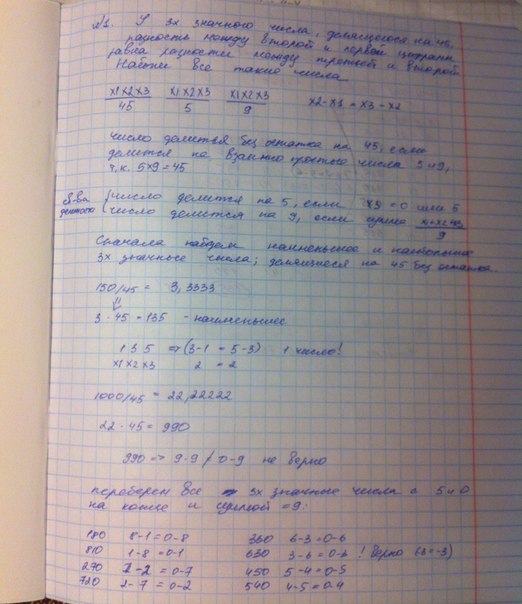 №1. У 3х значного числа, делящегося на 45,
разность между второй и первой цифрами
равна разности между третьей и второй.
Найти все такие числа
x1x2x3/45 x1x2x3/5 x1x2x3/9 x2-x1 = x3-x2
число делиться без остатка на 45, если
делится на взаимно простые числа 5 и 9,
т.к. 5x9=45
число делится на 5, если x3=0 или 5
число делится на 9, если сумма x1+x2+x3/9
Сначала найдем наименьшее и наибольшее
3х значные числа, делящиеся на 45 без остатка.
150/45 = 3,3333
3·45=135 - наименьшее
135 => (3-1 = 5-3) 1 число!
x1x2x3 2 = 2
1000/45 = 22,22222
22·45= 990
990 => 9-9 ≠ 0-9 не верно
переберем все 3х значные числа с 5 и 0
на конце и суммой =9:
180 8-1=0-8 360 6-3=0-6
810 1-8=0-1 630 3-6=0-3 ! верно (-3=-3)
270 7-2=0-7 450 5-4=0-5
720 2-7=0-2 540 4-5=0-4